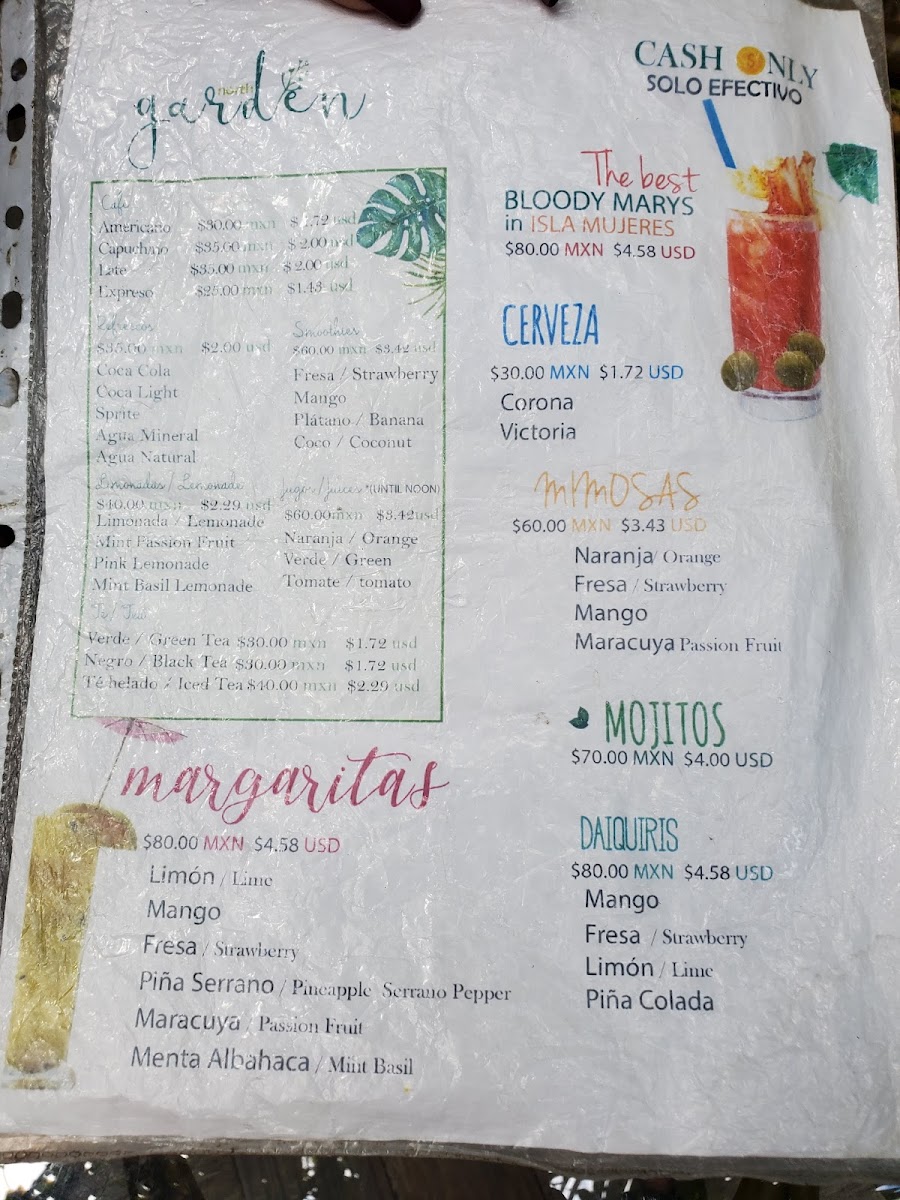 north
garden
CASH ONLY
SOLO EFECTIVO
Café
Americano $30.00 mxn $1.72 usd
Capuchino $35.00 mxn $2.00 usd
Late $35.00 mxn $2.00 usd
Expreso $25.00 mxn $1.43 usd
Refrescos
$35.00 mxn $2.00 usd
Coca Cola
Coca Light
Sprite
Agua Mineral
Agua Natural
Smoothies
$60.00 mxn $3.42 usd
Fresa / Strawberry
Mango
Plátano / Banana
Coco / Coconut
Limonadas / Lemonade
$40.00 mxn $2.29 usd
Limonada / Lemonade
Mint Passion Fruit
Pink Lemonade
Mint Basil Lemonade
Jugos / Juices *(UNTIL NOON)
$60.00mxn $3.42usd
Naranja / Orange
Verde / Green
Tomate / tomato
Te / Tea
Verde / Green Tea $30.00 mxn $1.72 usd
Negro / Black Tea $30.00 mxn $1.72 usd
Té helado / Iced Tea $40.00 mxn $2.29 usd
margaritas
$80.00 MXN $4.58 USD
Limón / Lime
Mango
Fresa / Strawberry
Piña Serrano / Pineapple Serrano Pepper
Maracuya / Passion Fruit
Menta Albahaca / Mint Basil
The best
BLOODY MARYS
in ISLA MUJERES
$80.00 MXN $4.58 USD
CERVEZA
$30.00 MXN $1.72 USD
Corona
Victoria
MIMOSAS
$60.00 MXN $3.43 USD
Naranja/ Orange
Fresa / Strawberry
Mango
Maracuya Passion Fruit
MOJITOS
$70.00 MXN $4.00 USD
DAIQUIRIS
$80.00 MXN $4.58 USD
Mango
Fresa / Strawberry
Limón / Lime
Piña Colada